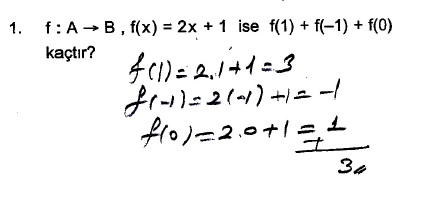 1. f : A → B , f(x) = 2x + 1 ise f(1) + f(–1) + f(0)
kaçtır?
f(1) = 2.1+1 = 3
f(-1) = 2(-1) +1 = -1
f(0) = 2.0+1 = 1
+
3